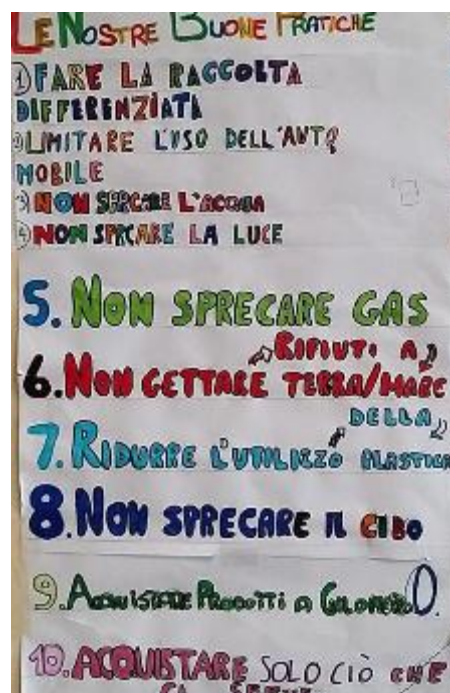 LE NOSTRE BUONE PRATICHE
1) FARE LA RACCOLTA
DIFFERENZIATA
2) LIMITARE L'USO DELL'AUTO
MOBILE
3) NON SPRECARE L'ACQUA
4) NON SPRCARE LA LUCE
5. NON SPRECARE GAS
RIFIUTI A
6. NON GETTARE TERRA/MARE
DELLA
7. RIDURRE L'UTILIZZO PLASTICA
8. NON SPRECARE IL CIBO
9. ACQUISTARE PRODOTTI A 0.
10. ACQUISTARE SOLO CIÒ CHE
CI SERVE